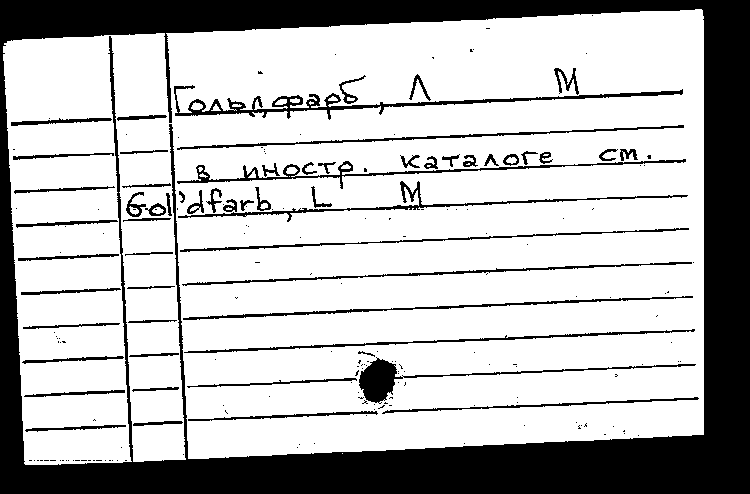 Гольдфарб, Л М
в иностр. каталоге см.
Gol'dfarb, L M